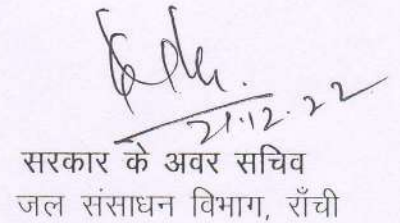 21.12.22
सरकार के अवर सचिव
जल संसाधन विभाग, राँची